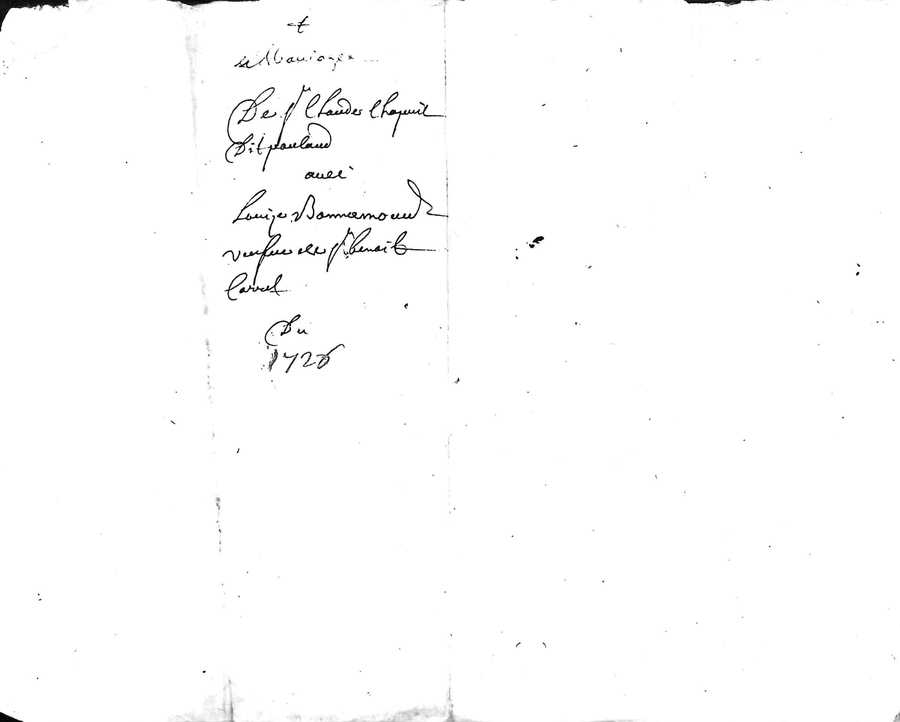 t
de Mariage
De Sr Claude Chapuit
Dit
avec
Louise Bonnemoud
veufue de Sr benoit
Carrel
Du
1726